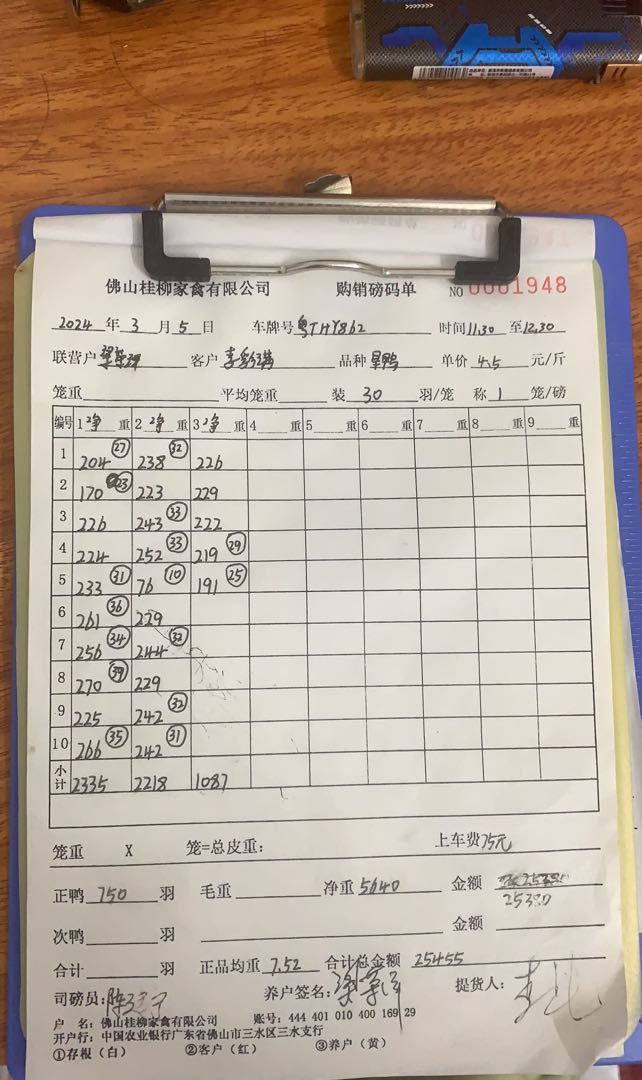 佛山桂柳家禽有限公司 购销磅码单 NO 0001948
2024 年 3 月 5 日 车牌号 粤THY862 时间 11.30 至 12.30
联营户 客户 李彩满 品种 旱鸭 单价 4.5 元/斤
笼重 平均笼重 装 30 羽/笼 称 1 笼/磅
编号 1 净 重 2 净 重 3 净 重 4 重 5 重 6 重 7 重 8 重 9 重
1 204 (27) 238 (32) 226
2 170 (23) 223 229
3 226 243 (33) 222
4 224 252 (33) 219 (29)
5 233 (31) 76 (10) 191 (25)
6 261 (36) 229
7 256 (34) 244 (32)
8 270 (39) 229
9 225 242 (32)
10 266 (35) 242 (31)
小计 2335 2218 1087
笼重 X 笼=总皮重: 上车费 75元
正鸭 750 羽 毛重 净重 5640 金额 25380
次鸭 羽 金额
合计 羽 正品均重 7.52 合计总金额 25455
司磅员: 养户签名: 提货人:
户 名: 佛山桂柳家禽有限公司 账号: 444 401 010 400 169 29
开户行: 中国农业银行广东省佛山市三水区三水支行
①存根(白) ②客户(红) ③养户(黄)